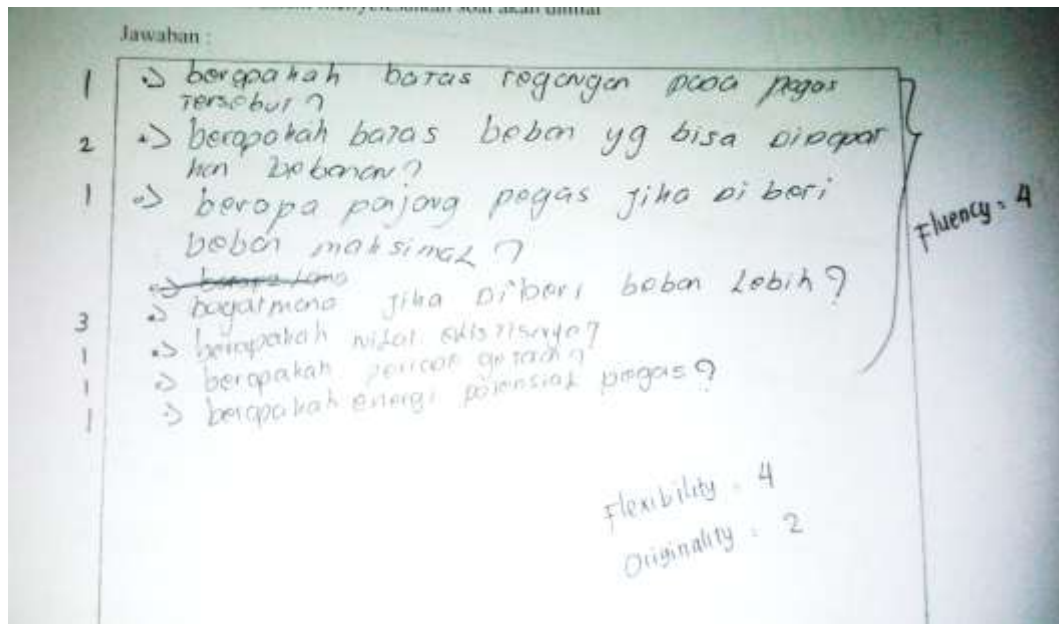 Jawaban :
1 •> berapakah batas regangan pada pegas
tersebut ?
2 •> berapakah batas beban yg bisa didapat
kan bebanan ?
1 •> berapa panjang pegas jika di beri
beban maksimal ?
•> bagaimana jika diberi beban lebih ?
3
1 •> berapakah nilai
1 •> berapakah
1 •> berapakah energi potensial pegas ?
Fluency = 4
Flexibility = 4
Originality = 2